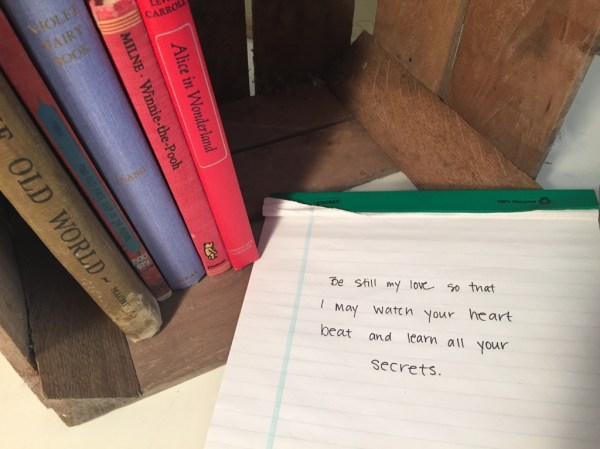 VIOLET
FAIRY
BOOK
LANG
OLD WORLD
MILNE · Winnie-the-Pooh
CARROLL
Alice in Wonderland
Be still my love so that
I may watch your heart
beat and learn all your
secrets.